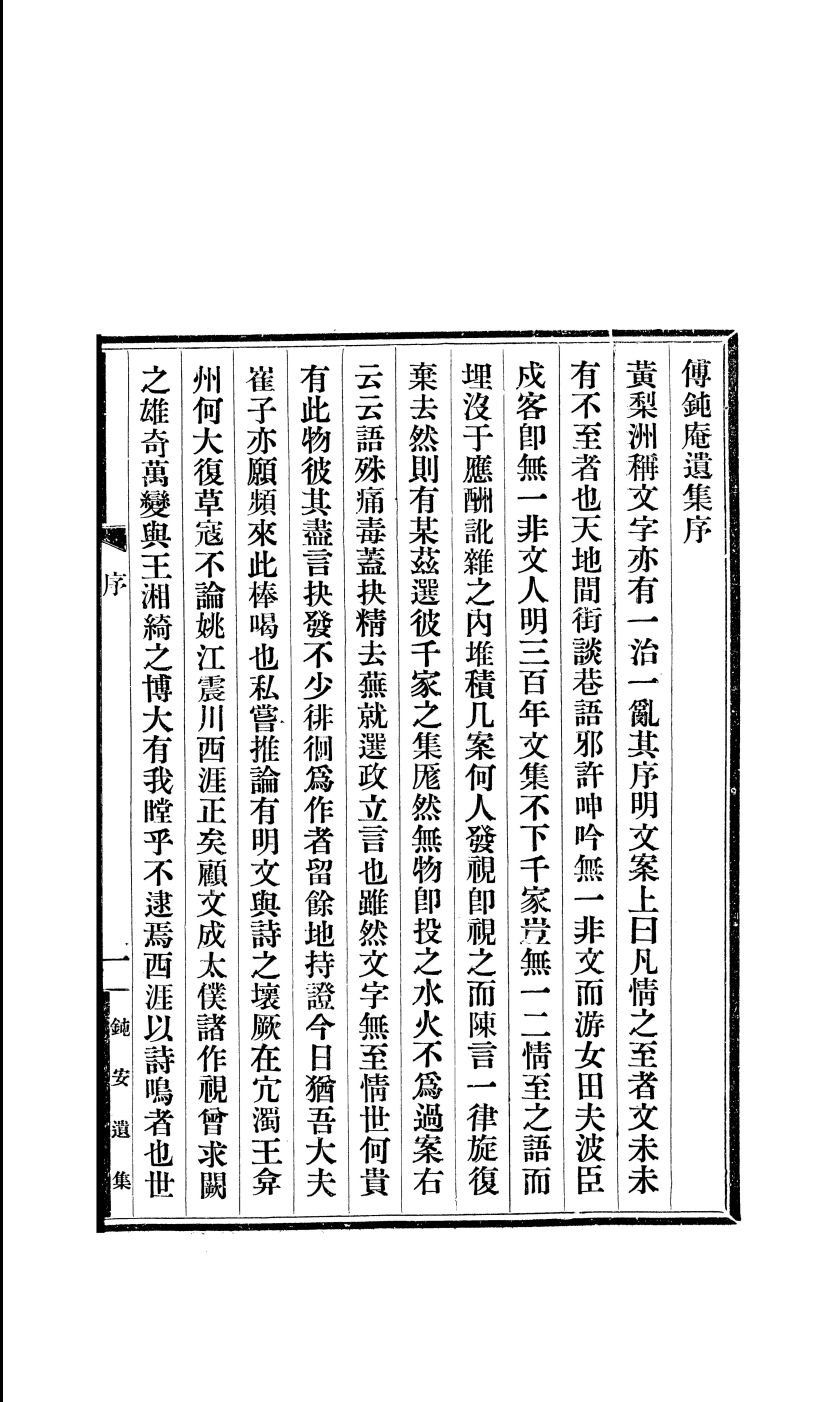 傅鈍庵遺集序
黃梨洲稱文字亦有一治一亂其序明文案上曰凡情之至者文未未
有不至者也天地間街談巷語邪許呻吟無一非文而游女田夫波臣
戍客卽無一非文人明三百年文集不下千家豈無一二情至之語而
埋沒于應酬訛雜之內堆積几案何人發視卽視之而陳言一律旋復
棄去然則有某茲選彼千家之集厖然無物卽投之水火不爲過案右
云云語殊痛毒蓋抉精去蕪就選政立言也雖然文字無至情世何貴
有此物彼其盡言抉發不少徘徊爲作者留餘地持證今日猶吾大夫
崔子亦願頻來此棒喝也私嘗推論有明文與詩之壞厥在宂濁王弇
州何大復草寇不論姚江震川西涯正矣顧文成太僕諸作視曾求闕
之雄奇萬變與王湘綺之博大有我瞠乎不逮焉西涯以詩鳴者也世
序
一
鈍安遺集